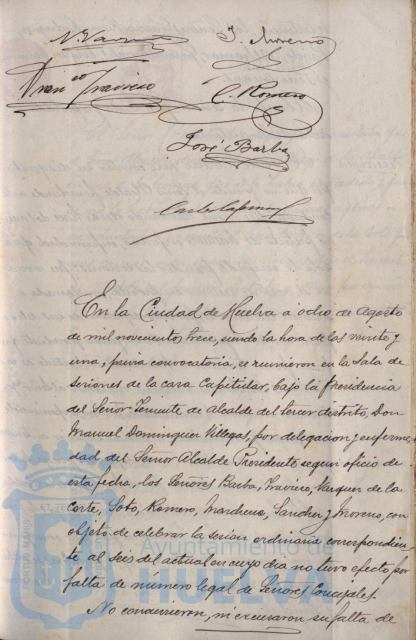 J. Moreno
Franco Traviero
C. Romero
José Barba
En la Ciudad de Huelva a ocho de Agosto
de mil novecientos trece, siendo la hora de las veinte y
una, previa convocatoria, se reunieron en la Sala de
Sesiones de la casa Capitular, bajo la Presidencia
del Señor Teniente de Alcalde del tercer distrito, Don
Manuel Dominguez Villegas, por delegacion y enferme
dad del Señor Alcalde Presidente segun oficio de
esta fecha, los Señores Barba, Traviero, Vazquez de la
Corte, Soto, Romero, Marchena, Sanchez y Moreno, con
objeto de celebrar la sesion ordinaria correspondien
te al seis del actual en cuyo dia no tuvo efecto por
falta de número legal de Señores Concejales.
No concurrieron, ni excusaron su falta de
Ayuntamiento de
HUELVA